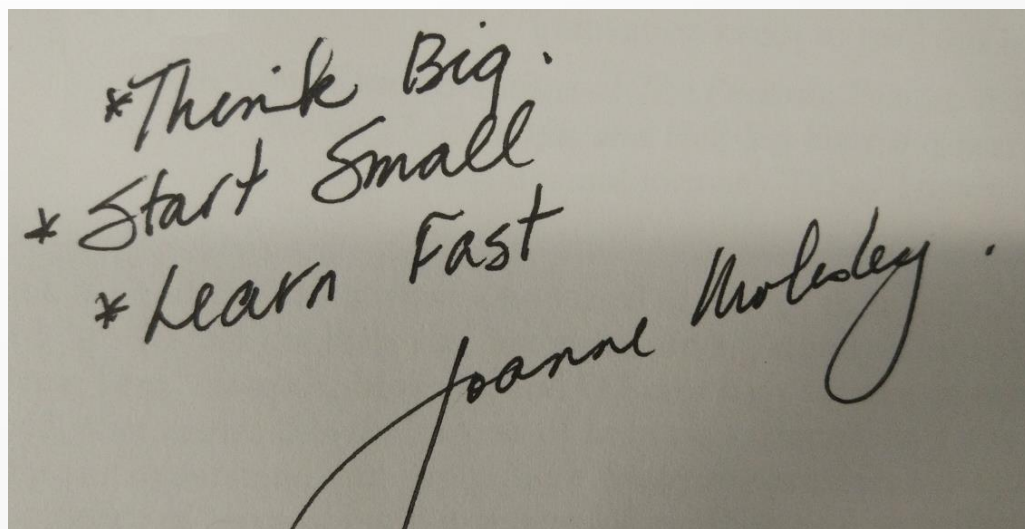 *Think Big.
* Start Small
* Learn Fast
Joanne Molesley.